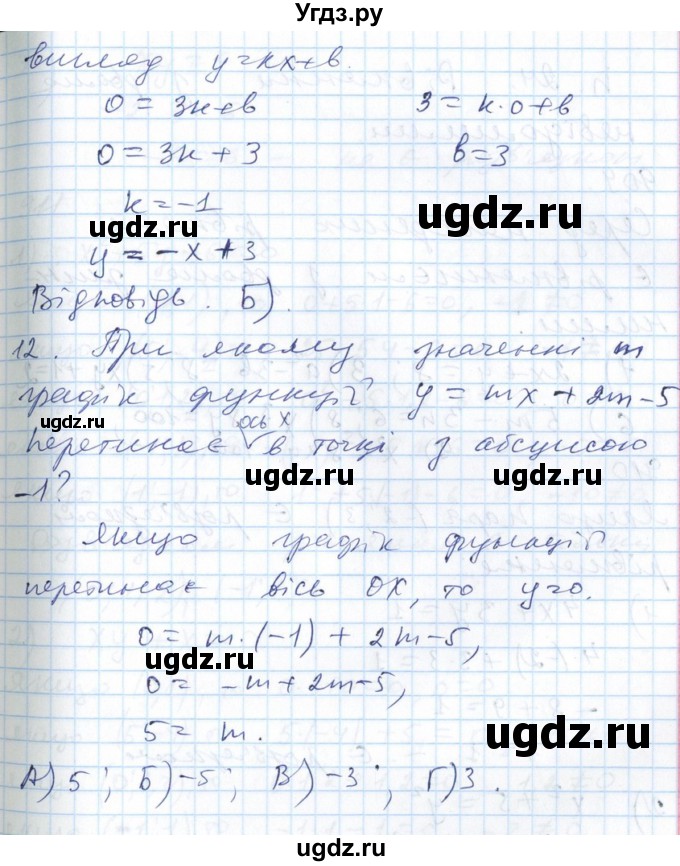 Угдз.ру
вигляд y=kx+b.
0 = 3k+b 3 = k·0+b
0 = 3k + 3 b=3
k=-1
ugdz.ru ugdz.ru
y = -x + 3
Відповідь. Б).
12. При якому значенні m
графік функції y = mx + 2m-5
ugdz.ru
ось x
перетинає в точці з абсцисою
ugdz.ru ugdz.ru
-1?
Якщо графік функції
перетинає вісь OX, то y=0.
0 = m·(-1) + 2m-5,
ugdz.ru
0 = -m+2m-5,
ugdz.ru
5 = m.
А) 5; Б) -5; В) -3; Г) 3.
ugdz.ru ugdz.ru